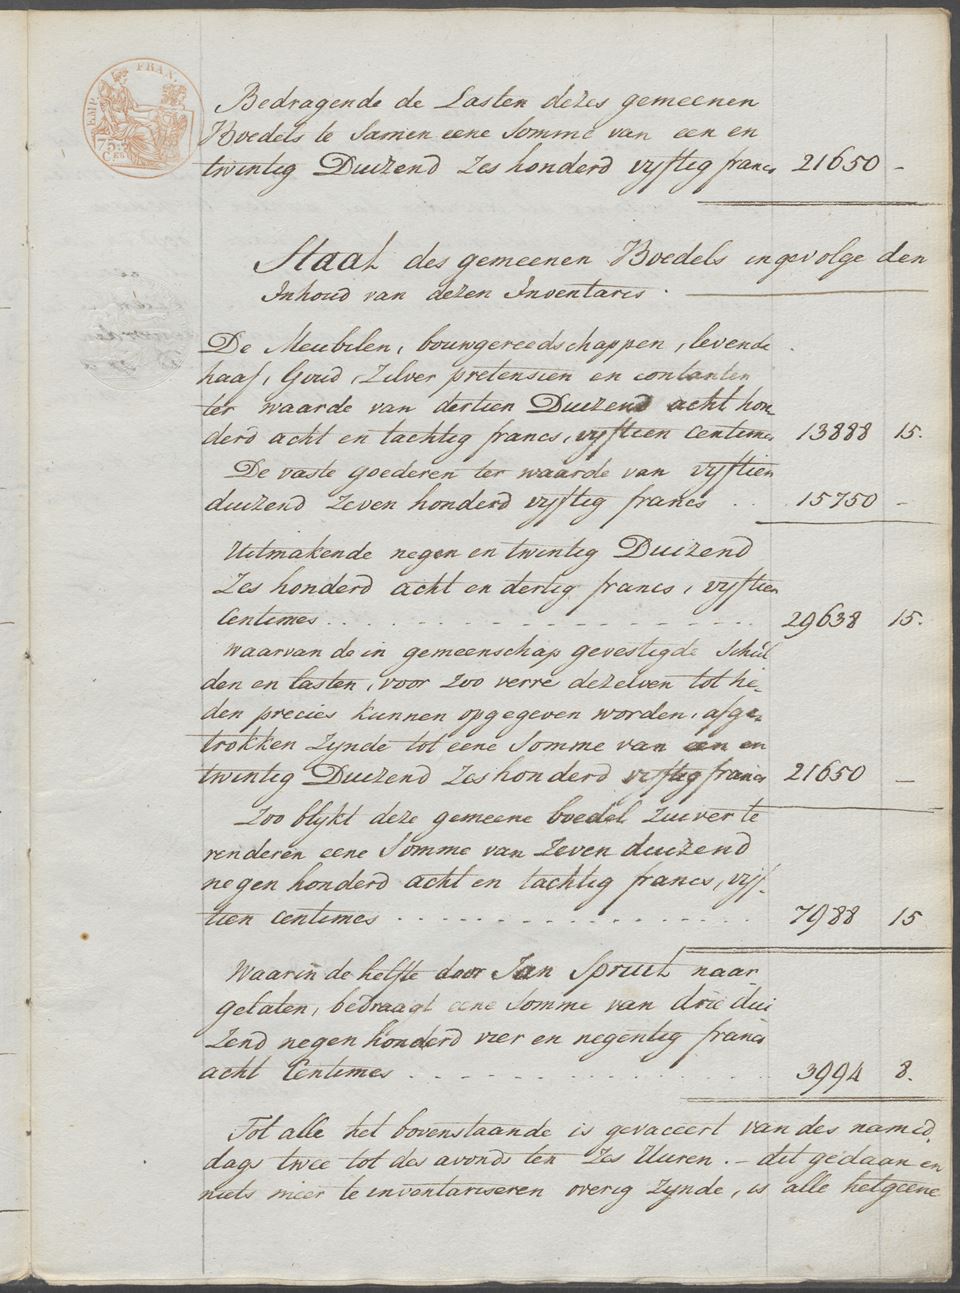 EMP. FRAN.
75.
Cen
Bedragende de Lasten dezes gemeenen
Boedels te Samen eene Somme van een en
twintig Duizend Zes honderd vyftig francs 21650 -
Staat des gemeenen Boedels ingevolge den
Inhoud van dezen Inventaris.
De Meubilen, bouwgereedschappen, levende
haaf, Goud, Zilver pretensien en contanten
ter waarde van dertien Duizend acht hon
derd acht en tachtig francs, vyftien Centimes 13888 15.
De vaste goederen ter waarde van vyftien
duizend Zeven honderd vyftig francs . . 15750 -
Uitmakende negen en twintig Duizend
Zes honderd acht en dertig francs, vyftien
Centimes . . . . 29638 15.
waarvan de in gemeenschap gevestigde Schul
den en lasten, voor Zoo verre dezelven tot he-
den precies kunnen opgegeven worden, afge-
trokken Zynde tot eene Somme van een en
twintig Duizend Zes honderd vyftig francs 21650 -
Zoo blykt deze gemeene boedel Zuiver te
renderen eene Somme van Zeven duizend
negen honderd acht en tachtig francs, vyf-
tien centimes . . . . 7988 15
Waarin de helfte door Jan Spruit naar
gelaten, bedraagt eene Somme van drie dui
Zend negen honderd vier en negentig francs
acht Centimes . . . . 3994 8.
Tot alle het bovenstaande is gevaceert van des namid,
dags twee tot des avonds ten Zes Uuren. - dit gedaan en
niets meer te inventariseren overig Zynde, is alle hetgeene